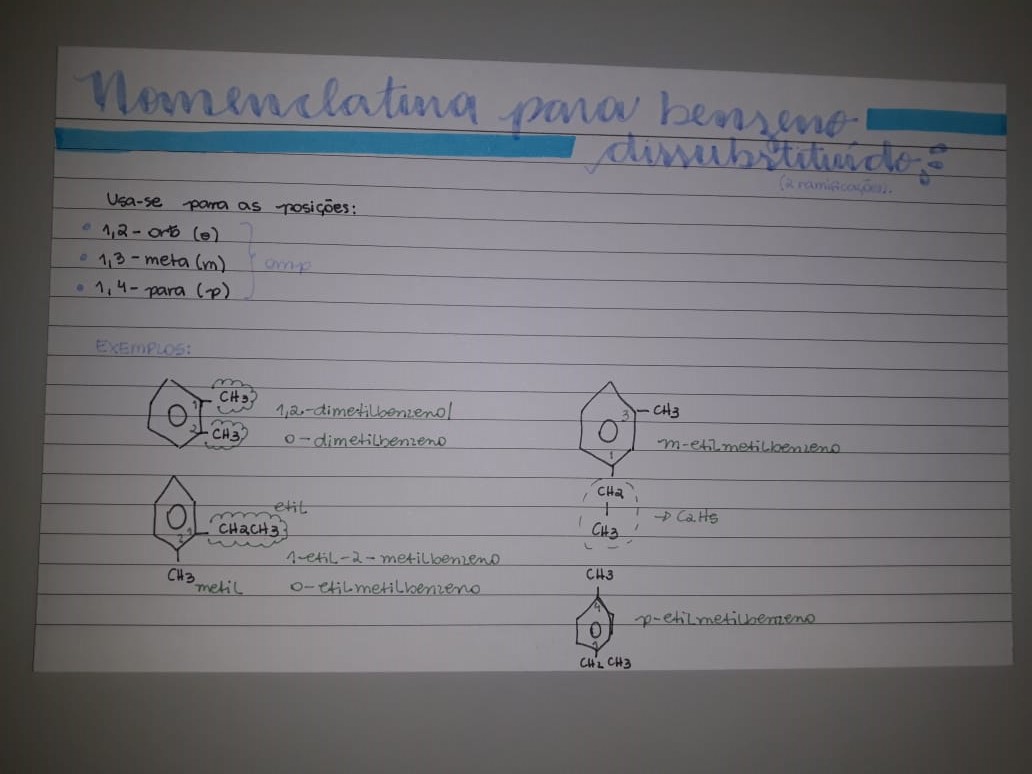 Nomenclatura para benzeno
dissubstituído:
(2 ramificações).
Usa-se para as posições:
• 1,2 - orto (o)
• 1,3 - meta (m)
• 1,4 - para (p)
omp
EXEMPLOS:
1 CH3
2 CH3
1,2-dimetilbenzeno/
o-dimetilbenzeno
etil
1 CH2CH3
2
CH3 metil
1-etil-2-metilbenzeno
o-etilmetilbenzeno
3 CH3
m-etilmetilbenzeno
1
CH2
CH3
→ C2H5
CH3
4
p-etilmetilbenzeno
1
CH2 CH3